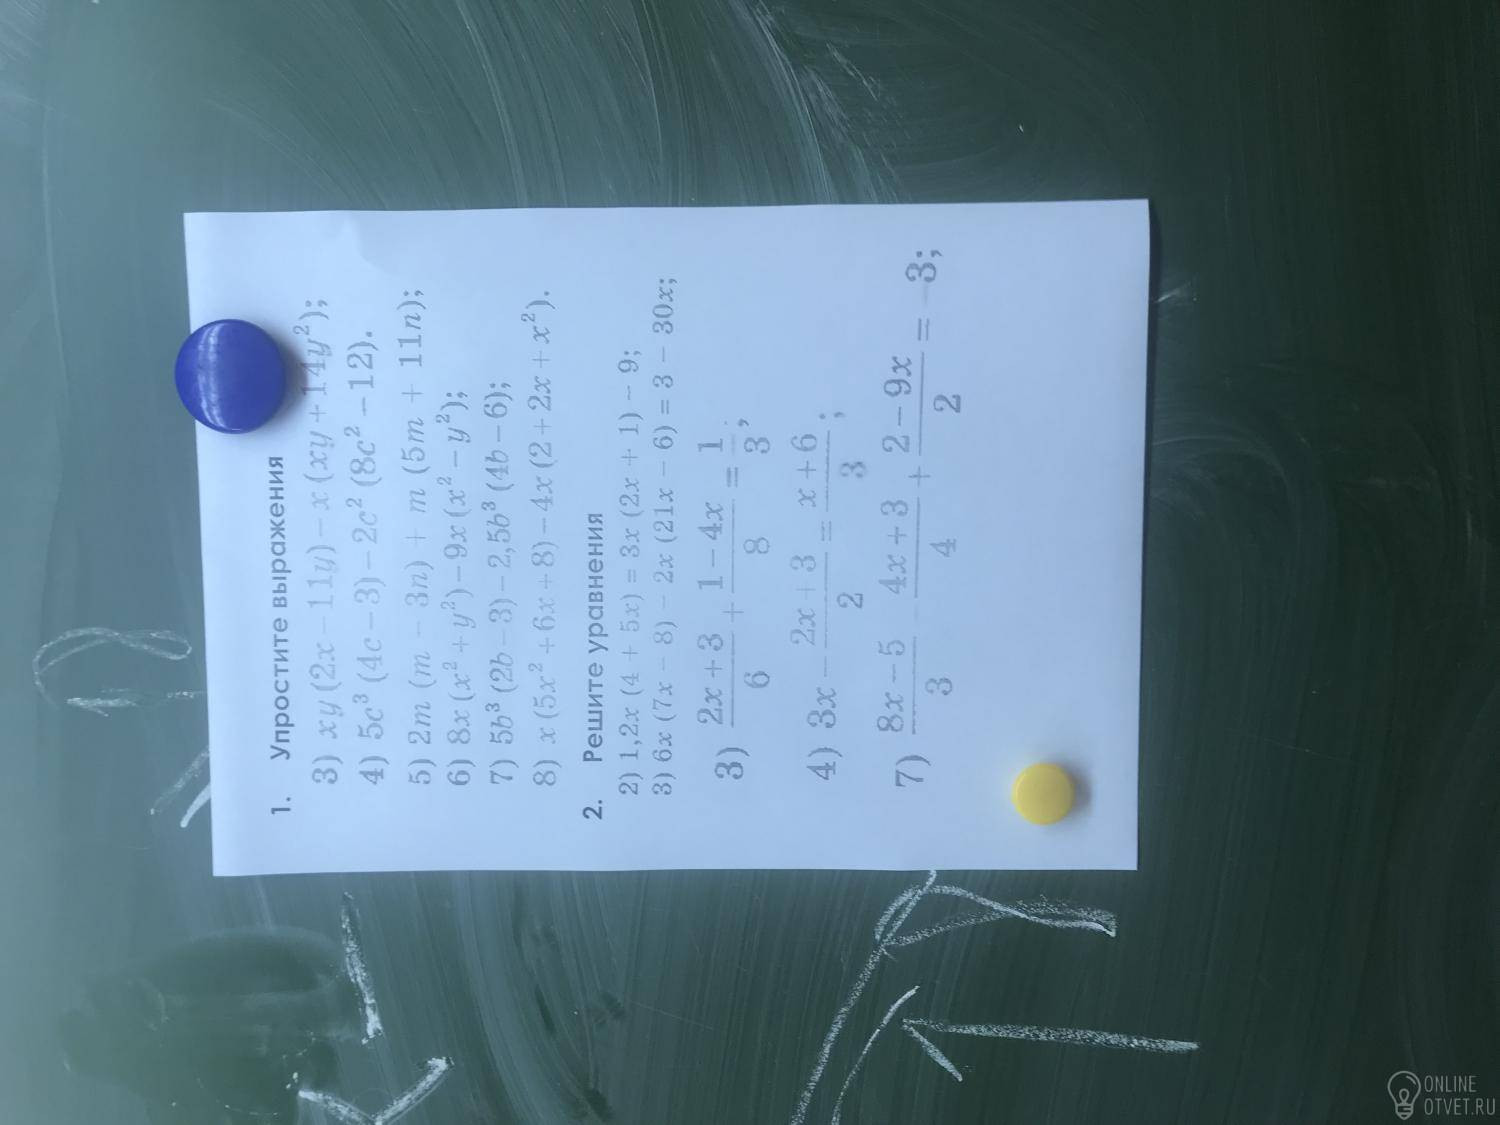 1. Упростите выражения
3) xy (2x − 11y) − x (xy + 14y²);
4) 5c³ (4c − 3) − 2c² (8c² − 12).
5) 2m (m − 3n) + m (5m + 11n);
6) 8x (x² + y²) − 9x (x² − y²);
7) 5b³ (2b − 3) − 2,5b³ (4b − 6);
8) x (5x² + 6x + 8) − 4x (2 + 2x + x²).
2. Решите уравнения
2) 1,2x (4 + 5x) = 3x (2x + 1) − 9;
3) 6x (7x − 8) − 2x (21x − 6) = 3 − 30x;
3) (2x + 3)/6 + (1 − 4x)/8 = 1/3;
4) 3x − (2x + 3)/2 = (x + 6)/3;
7) (8x − 5)/3 − (4x + 3)/4 + (2 − 9x)/2 = −3;
ONLINE
OTVET.RU